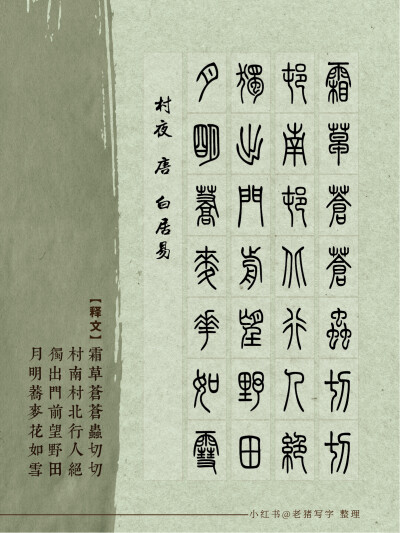 霜草蒼蒼蟲切切
邨南邨北行人絕
獨出門前望野田
月明蕎麥華如雪
村夜 唐 白居易
【释文】霜草蒼蒼蟲切切
村南村北行人絕
獨出門前望野田
月明蕎麥花如雪
小红书@老猪写字 整理